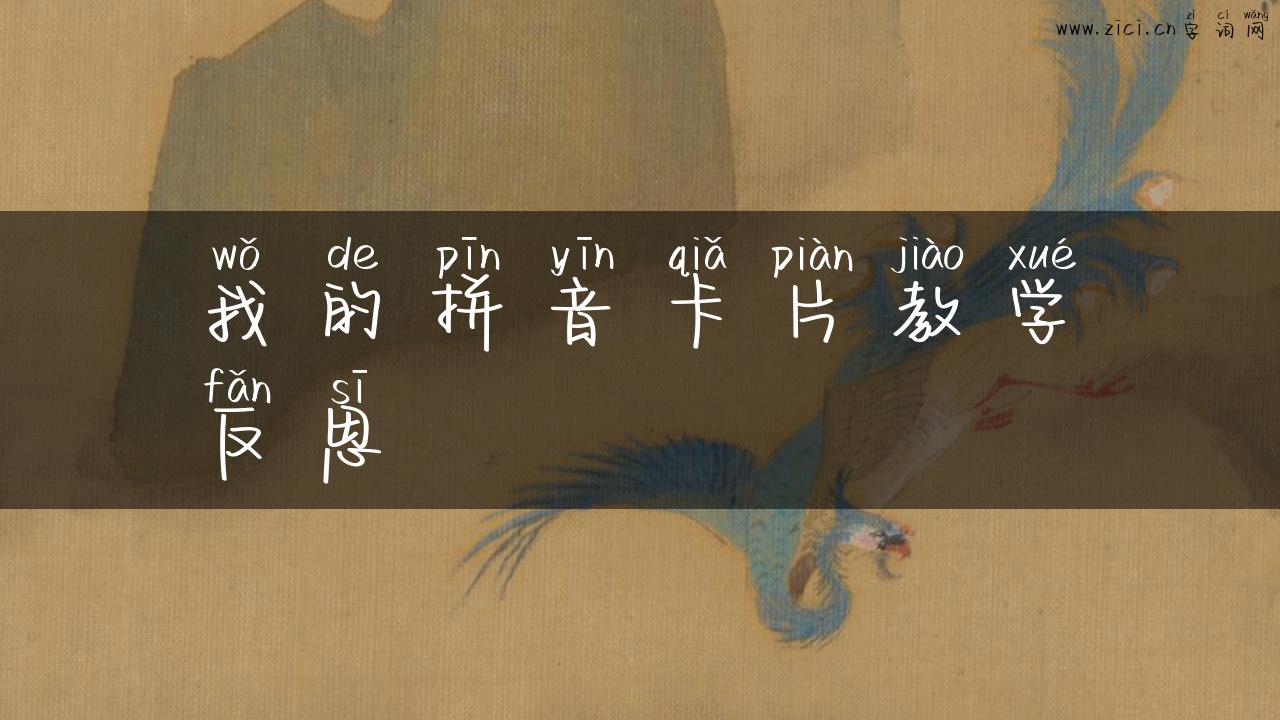 www.zici.cn
zì cí wǎng
字词网
wǒ de pīn yīn qiǎ piàn jiào xué
我的拼音卡片教学
fǎn sī
反思